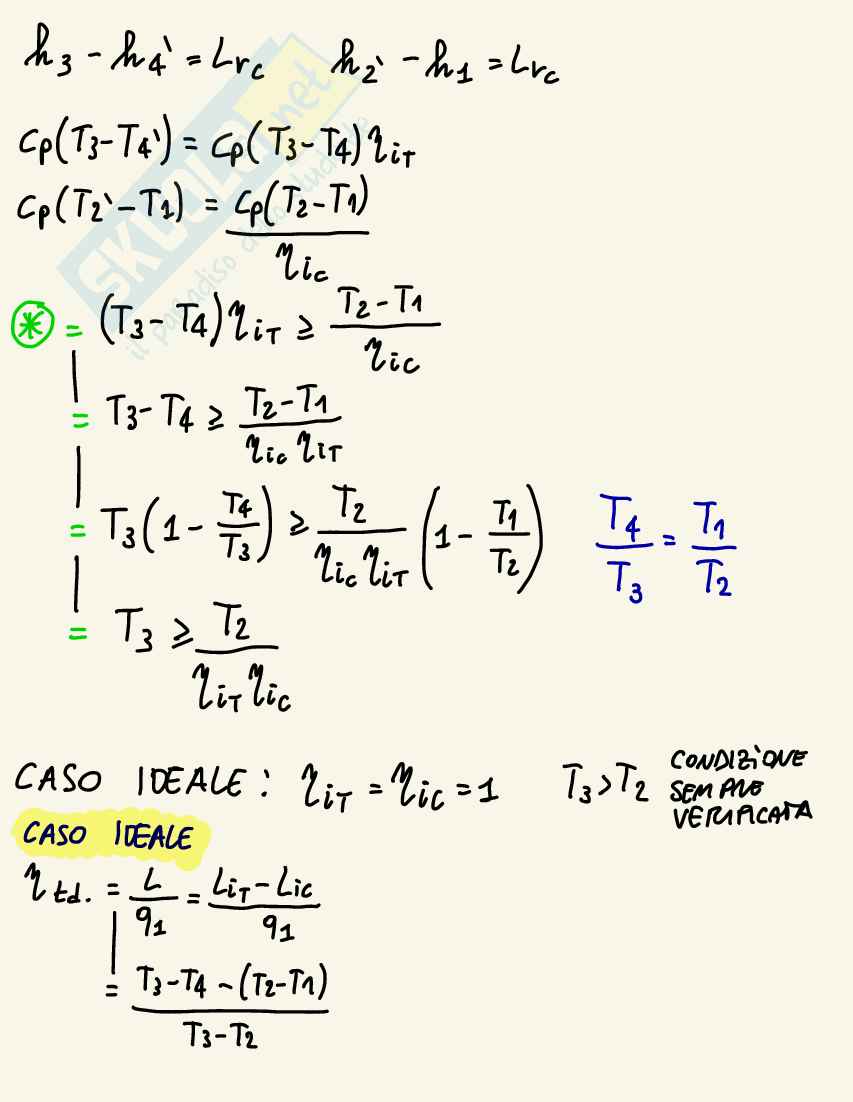 h3 - h4' = Lrc h2' - h1 = Lrc
cp(T3-T4') = cp(T3-T4)ηiT
cp(T2'-T1) = cp(T2-T1)/ηic
⊛ = (T3-T4)ηiT ≥ (T2-T1)/ηic
= T3-T4 ≥ (T2-T1)/(ηic ηiT)
= T3(1 - T4/T3) ≥ T2/(ηic ηiT) (1 - T1/T2) T4/T3 = T1/T2
= T3 ≥ T2/(ηiT ηic)
CASO IDEALE: ηiT = ηic = 1 T3 > T2 CONDIZIONE
SEMPRE
VERIFICATA
CASO IDEALE
ηtd. = L/q1 = (LiT - Lic)/q1
= (T3-T4-(T2-T1))/(T3-T2)
SKUOLA.net
il paradiso dello studente